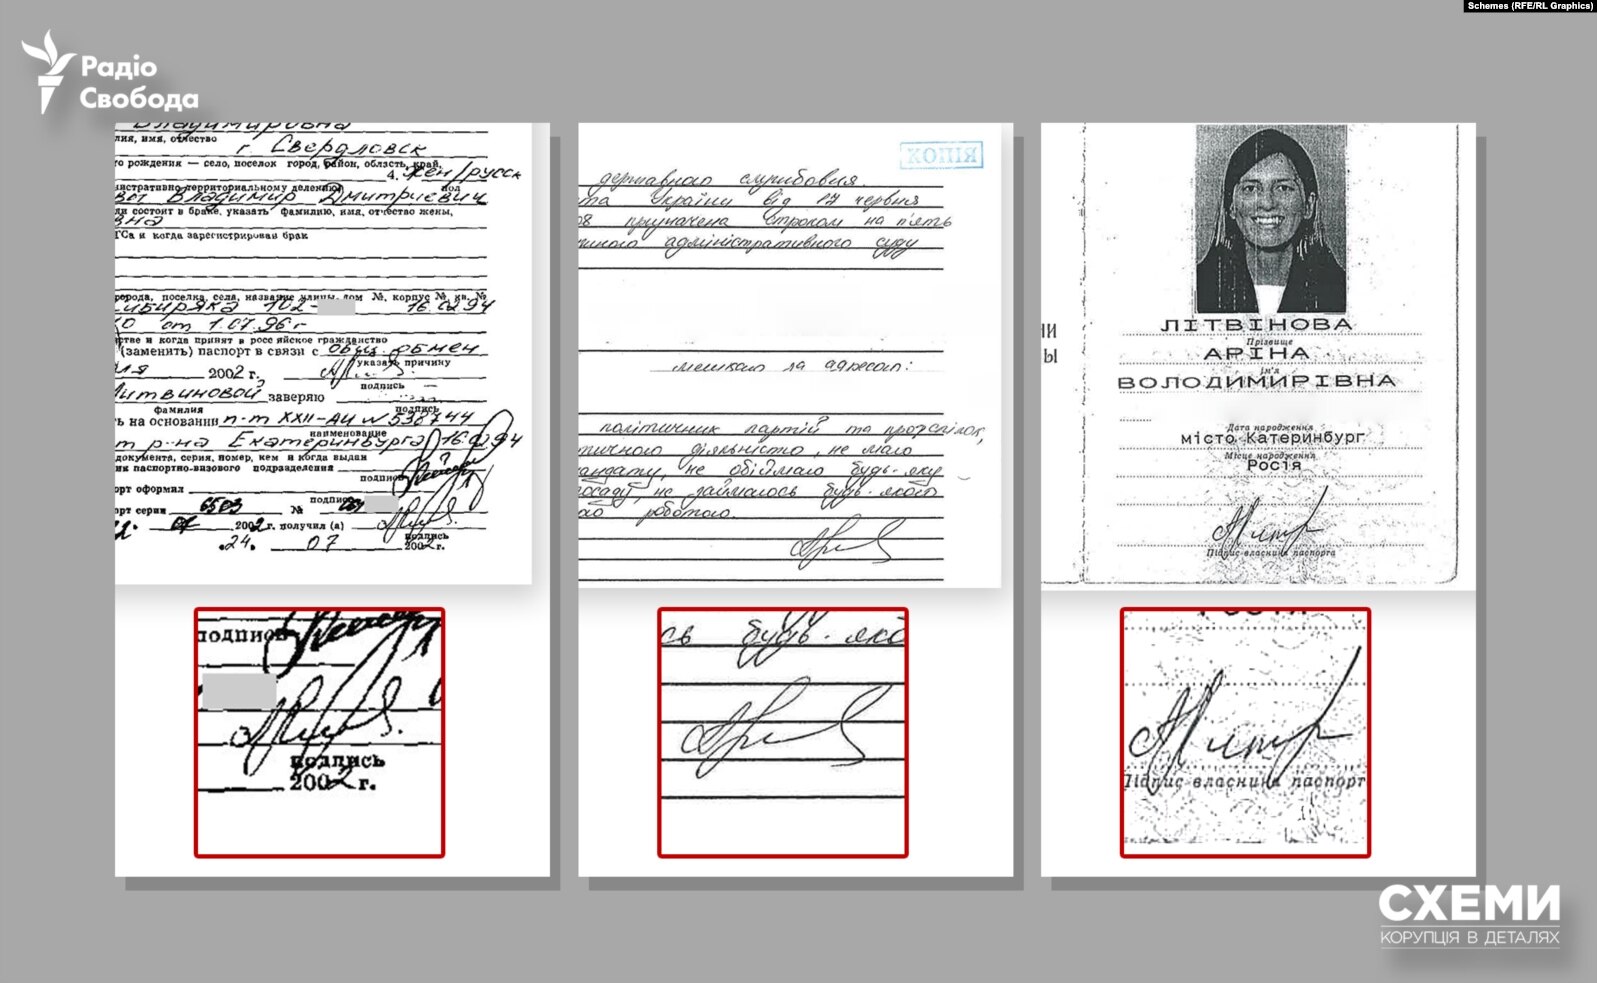 Schemes (RFE/RL Graphics)
Радіо
Свобода
Владимировна
лия, имя, отчество
г. Свердловск
о рождения — село, поселок город, район, область, край,
4. жен/русск
пол
нистративно-территориальному делению
Владимир Дмитриевич
ли состоит в браке, указать фамилию, имя, отчество жены,
вна
ГСа и когда зарегистрирован брак
города, поселка, села, название улицы, дом №, корпус №, кв. №
сибиряка 102- 16.02.94
от 1.07.96г
тве и когда принят в российское гражданство
(заменить) паспорт в связи с общ. обмен
указать причину
2002 г.
подпись
Литвиновой заверяю
фамилия подпись
ь на основании п-т XXII-АИ № 538744
наименование
р-на Екатеринбурга 16.02.94
документа, серия, номер, кем и когда выдан
ик паспортно-визового подразделения
подпись
орт оформил
подпись
орт серии 6503 №
07 2002 г. получил (а)
подпись
24. 07 2002 г.
КОПІЯ
державного службовця.
та України від 17 червня
08 призначена строком на п'ять
адміністративного суду
мешкаю за адресою:
політичник партій та профспілок,
тичного діяльністю, не маю
мандату, не обіймаю будь-яку
посаду, не займаюсь будь-якою
роботою.
НИ
Ы
ЛІТВІНОВА
Прізвище
АРІНА
Ім'я
ВОЛОДИМИРІВНА
Дата народження
місто Катеринбург
Місце народження
Росія
Підпис власника паспорта
подпись
подпись
2002 г.
сь будь-яко
Росія
Підпис власника паспорт
СХЕМИ
КОРУПЦІЯ В ДЕТАЛЯХ